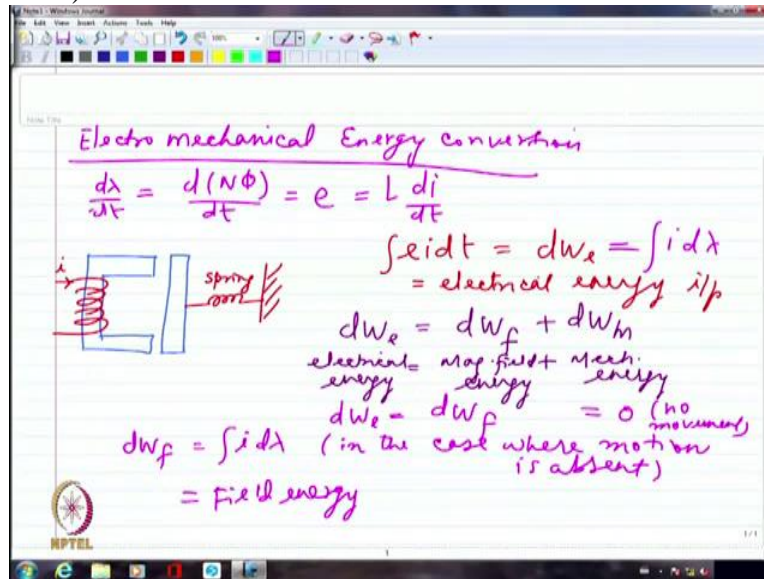 Note1 - Windows Journal
File Edit View Insert Actions Tools Help
100%
B I
Note Title
Electro mechanical Energy convertion
dλ/dt = d(Nφ)/dt = e = L di/dt
i
spring
∫eidt = dWe = ∫idλ
= electrical energy i/p
dWe = dWf + dWm
electrical energy = Mag. field energy + Mech. energy
dWe = dWf = 0 (no movement)
dWf = ∫idλ (in the case where motion is absent)
= Field energy
NPTEL
1/1
1